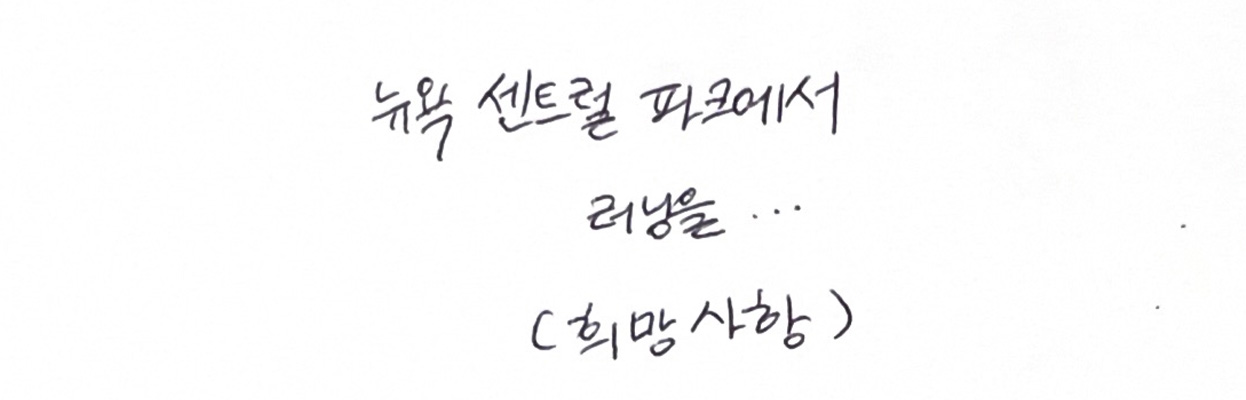 뉴욕 센트럴 파크에서
러닝을 ...
(희망사항)